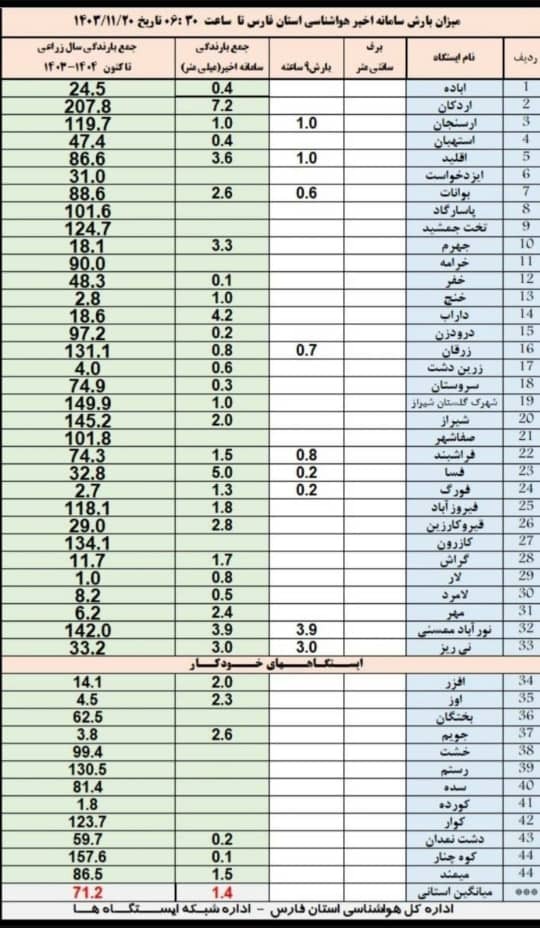 میزان بارش سامانه اخیر هواشناسی استان فارس تا ساعت ۰۶:۳۰ تاریخ ۱۴۰۳/۱۱/۲۰
ردیف نام ایستگاه برف سانتی متر بارش۹ ساعته جمع بارندگی سامانه اخیر(میلی متر) جمع بارندگی سال زراعی تاکنون ۱۴۰۴-۱۴۰۳
1 اباده 0.4 24.5
2 اردکان 7.2 207.8
3 ارسنجان 1.0 1.0 119.7
4 استهبان 0.4 47.4
5 اقلید 1.0 3.6 86.6
6 ایزدخواست 31.0
7 بوانات 0.6 2.6 88.6
8 پاسارگاد 101.6
9 تخت جمشید 124.7
10 جهرم 3.3 18.1
11 خرامه 90.0
12 خفر 0.1 48.3
13 خنج 1.0 2.8
14 داراب 4.2 18.6
15 درودزن 0.2 97.2
16 زرقان 0.7 0.8 131.1
17 زرین دشت 0.6 4.0
18 سروستان 0.3 74.9
19 شهرک گلستان شیراز 1.0 149.9
20 شیراز 2.0 145.2
21 صفاشهر 101.8
22 فراشبند 0.8 1.5 74.3
23 فسا 0.2 5.0 32.8
24 فورگ 0.2 1.3 2.7
25 فیروزآباد 1.8 118.1
26 قیروکارزین 2.8 29.0
27 کازرون 134.1
28 گراش 1.7 11.7
29 لار 0.8 1.0
30 لامرد 0.5 8.2
31 مهر 2.4 6.2
32 نورآباد ممسنی 3.9 3.9 142.0
33 نی ریز 3.0 3.0 33.2
ایستگاههای خودکار
34 افزر 2.0 14.1
35 اوز 2.3 4.5
36 بختگان 62.5
37 جویم 2.6 3.8
38 خشت 99.4
39 رستم 130.5
40 سده 81.4
41 کورده 1.8
42 کوار 123.7
43 دشت نمدان 0.2 59.7
44 کوه چنار 0.1 157.6
44 میمند 1.5 86.5
*** میانگین استانی 1.4 71.2
اداره کل هواشناسی استان فارس - اداره شبکه ایستگاه ها